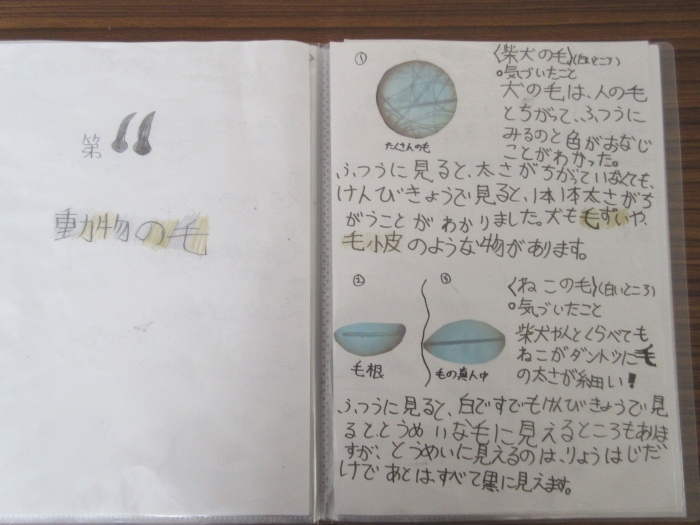 第
動物の毛
①
たくさんの毛
〈柴犬の毛〉(白いところ)
○気づいたこと
犬の毛は、人の毛
とちがって、ふつうに
みるのと色がおなじ
ことがわかった。
ふつうに見ると、太さがちがていなくても、
けんびきょうで見ると、1本1本太さがち
がうことがわかりました。犬も毛ずいや、
毛小皮のような物があります。
②
毛根
③
毛の真ん中
〈ねこの毛〉(白いところ)
○気づいたこと
柴犬や人とくらべても
ねこがダントツに毛
の太さが細い!
ふつうに見ると、白ですでもけんびきょうで見
ると、とうめいな毛に見えるところもありま
すが、とうめいに見えるのは、りょうはじだ
けであとはすべて黒に見えます。